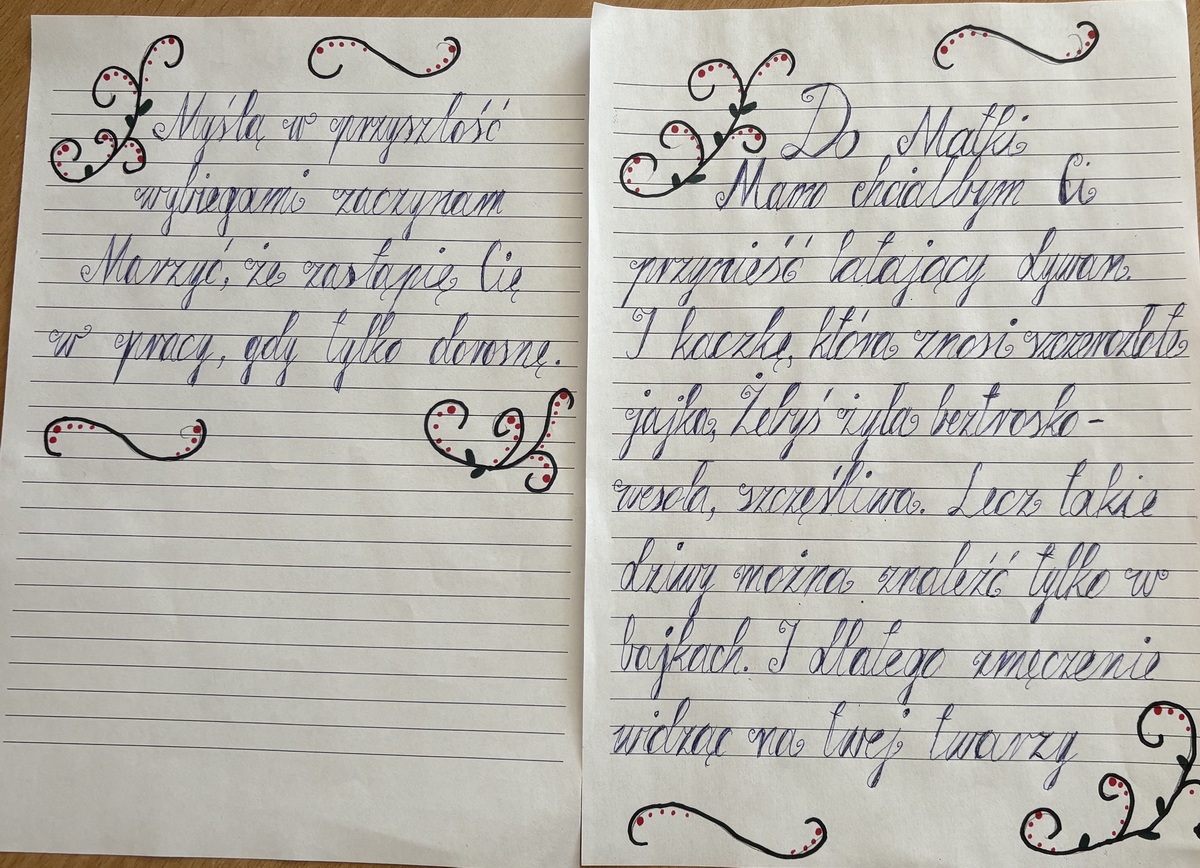 Do Matki
Mamo chciałbym Ci
przynieść latający dywan.
I kaczkę, która znosi szczerozłote
jajka, Żebyś żyła beztrosko-
wesoła, szczęśliwa. Lecz takie
dziwy można znaleźć tylko w
bajkach. I dlatego zmęczenie
widząc na twej twarzy
Myślą w przyszłość
wybiegami zaczynam
Marzyć, że zastąpię Cię
w pracy, gdy tylko dorosnę.